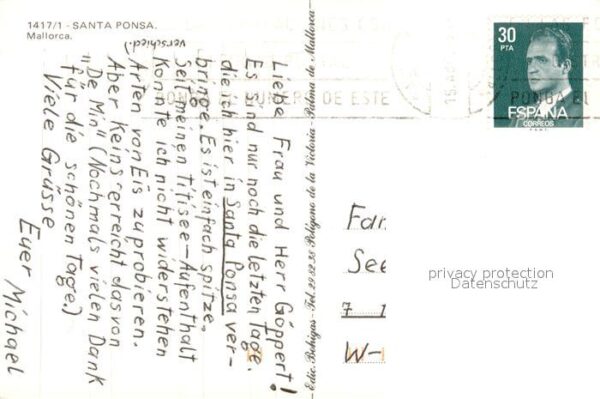 1417/1 - SANTA PONSA.
Mallorca.
Liebe Frau und Herr Göppert!
Es sind nur noch die letzten Tage,
die ich hier in Santa Ponsa ver-
bringe. Es ist einfach spitze.
Seit meinen Titisee-Aufenthalt
konnte ich nicht widerstehen
verschied.)
Arten von Eis zu probieren.
Aber keins erreicht das von
"De Min" (Nochmals vielen Dank
für die schönen Tage.)
Viele Grüsse
Euer Michael
Edic. Bohigas - Tel. 29 82 35 Polígono de la Victoria - Palma de Mallorca
30
PTA
ESPAÑA
CORREOS
F.N.M.T.
DE ESTE
PONGA EL
Fam
See
7
W-
privacy protection
Datenschutz